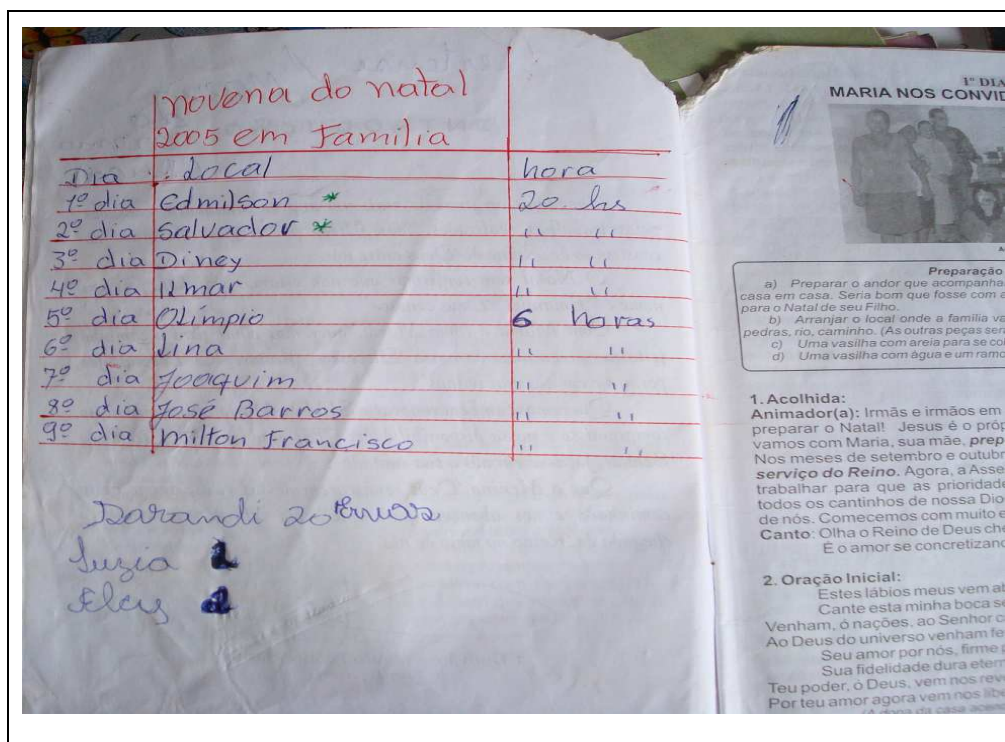 novena do natal
2005 em Familia
Dia : Local hora
1º dia Edmilson * 20 hs
2º dia Salvador * " "
3º dia Diney " "
4º dia Ilmar " "
5º dia Olímpio 6 horas
6º dia Lina " "
7º dia Joaquim " "
8º dia José Barros " "
9º dia Milton Francisco " "
20
Luzia
1º DIA
MARIA NOS CONVID
Preparação
a) Preparar o andor que acompanha
casa em casa. Seria bom que fosse com a
para o Natal de seu Filho.
b) Arranjar o local onde a família va
pedras, rio, caminho. (As outras peças ser
c) Uma vasilha com areia para se co
d) Uma vasilha com água e um ramo
1. Acolhida:
Animador(a): Irmãs e irmãos em
preparar o Natal! Jesus é o próp
vamos com Maria, sua mãe, prep
Nos meses de setembro e outubr
serviço do Reino. Agora, a Asse
trabalhar para que as prioridade
todos os cantinhos de nossa Dio
de nós. Comecemos com muito e
Canto: Olha o Reino de Deus che
É o amor se concretizand
2. Oração Inicial:
Estes lábios meus vem ab
Cante esta minha boca se
Venham, ó nações, ao Senhor c
Ao Deus do universo venham fe
Seu amor por nós, firme p
Sua fidelidade dura etern
Teu poder, ó Deus, vem nos reve
Por teu amor agora vem nos libe
(A dona da casa acen